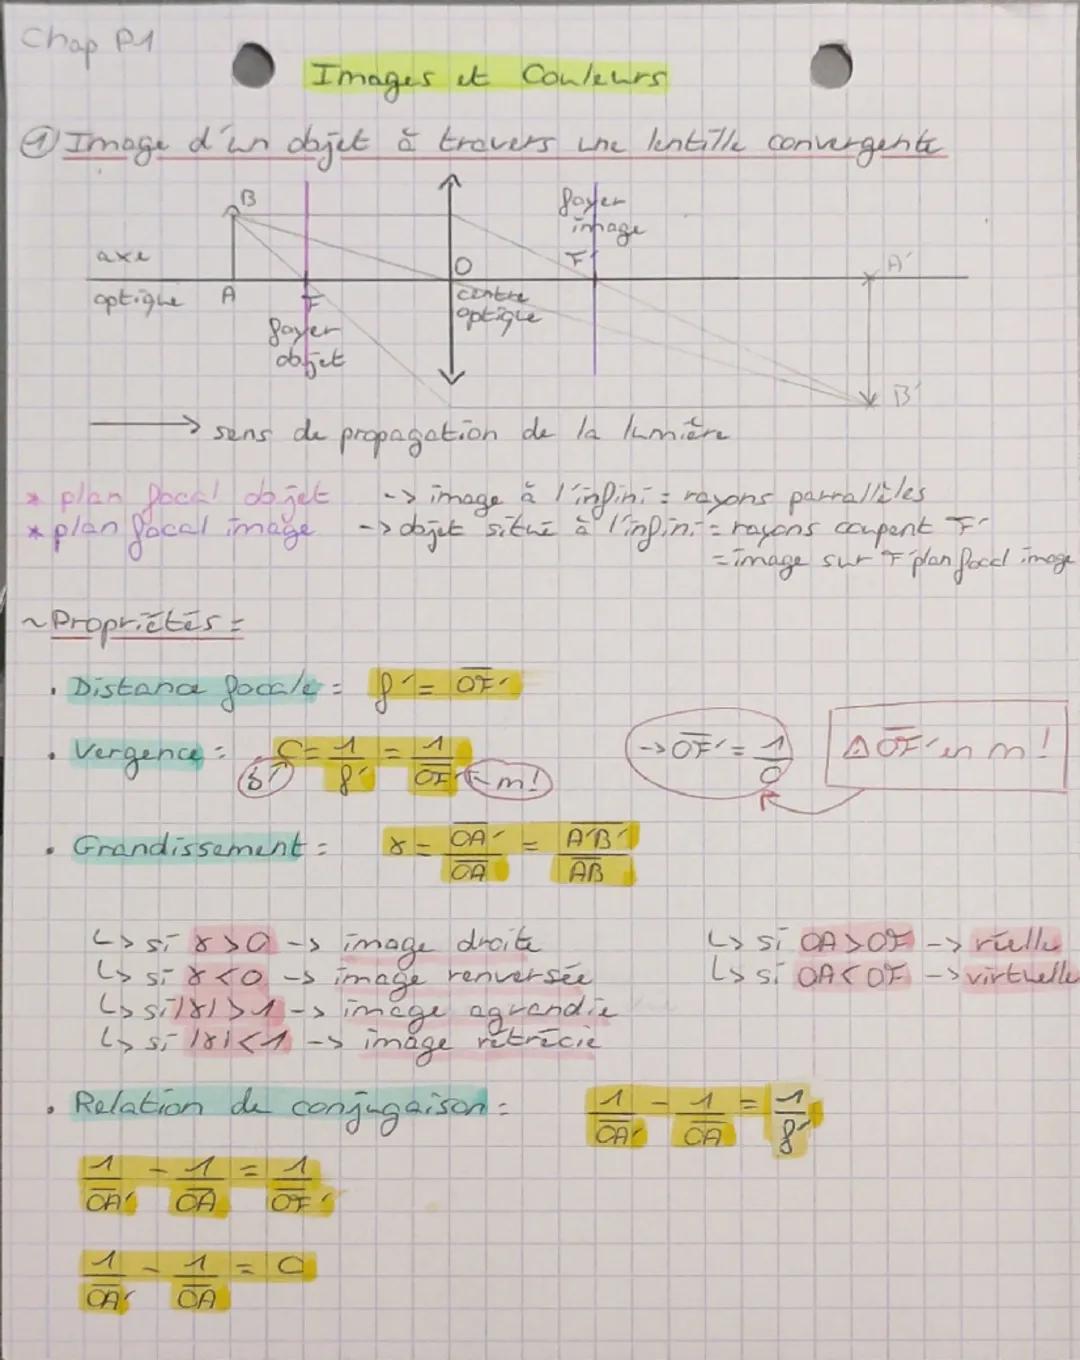 Chap P1
Images et Couleurs
① Image d'un objet à travers une lentille convergente
B
foyer
image
axe
O
F'
A'
optique
A
F
centre
optique
foyer
objet
B'
→ sens de propagation de la lumière
* plan focal objet -> image à l'infini = rayons parralèles
* plan focal image -> objet situé à l'infini = rayons coupent F'
= image sur F' plan focal image
~ Propriétés =
• Distance focale = f' = OF'
• Vergence = C = 1/f' = 1/OF' ← m!
δ
-> OF' = 1/C
⚠ OF' en m !
• Grandissement = γ = OA'/OA = A'B'/AB
↳ si γ > 0 -> image droite
↳ si OA > OF -> réelle
↳ si γ < 0 -> image renversée
↳ si OA < OF -> virtuelle
↳ si |γ| > 1 -> image agrandie
↳ si |γ| < 1 -> image rétrécie
• Relation de conjugaison = 1/OA' - 1/OA = 1/f'
1/OA' - 1/OA = 1/OF'
1/OA' - 1/OA = C